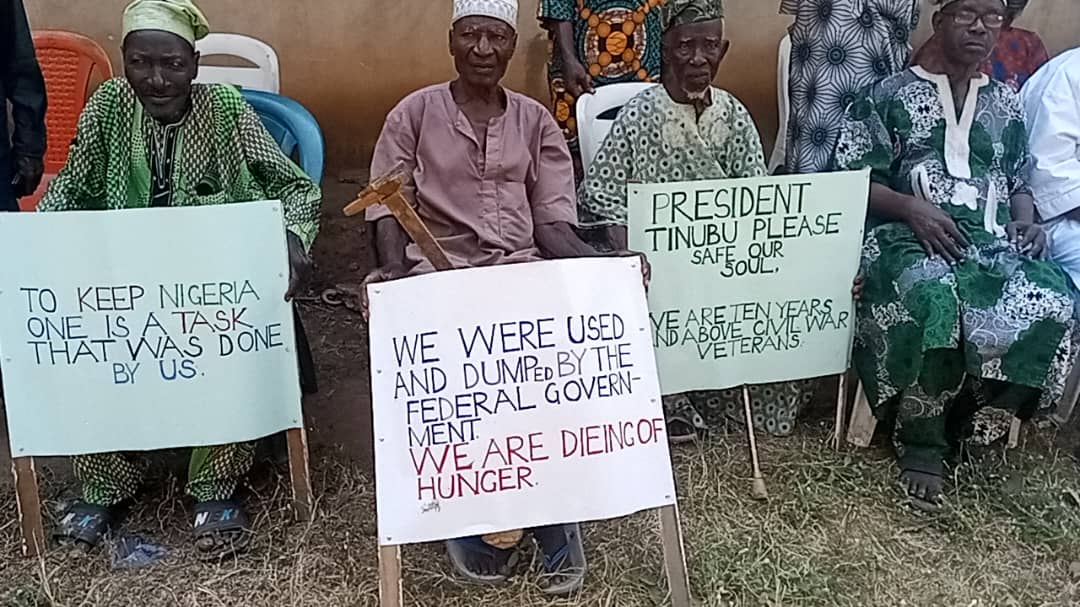 TO KEEP NIGERIA
ONE IS A TASK
THAT WAS DONE
BY US.
WE WERE USED
AND DUMPED BY THE
FEDERAL GOVERN-
MENT.
WE ARE DIEING OF
HUNGER.
PRESIDENT
TINUBU PLEASE
SAFE OUR
SOUL,
WE ARE TEN YEARS
AND ABOVE CIVIL WAR
VETERANS.